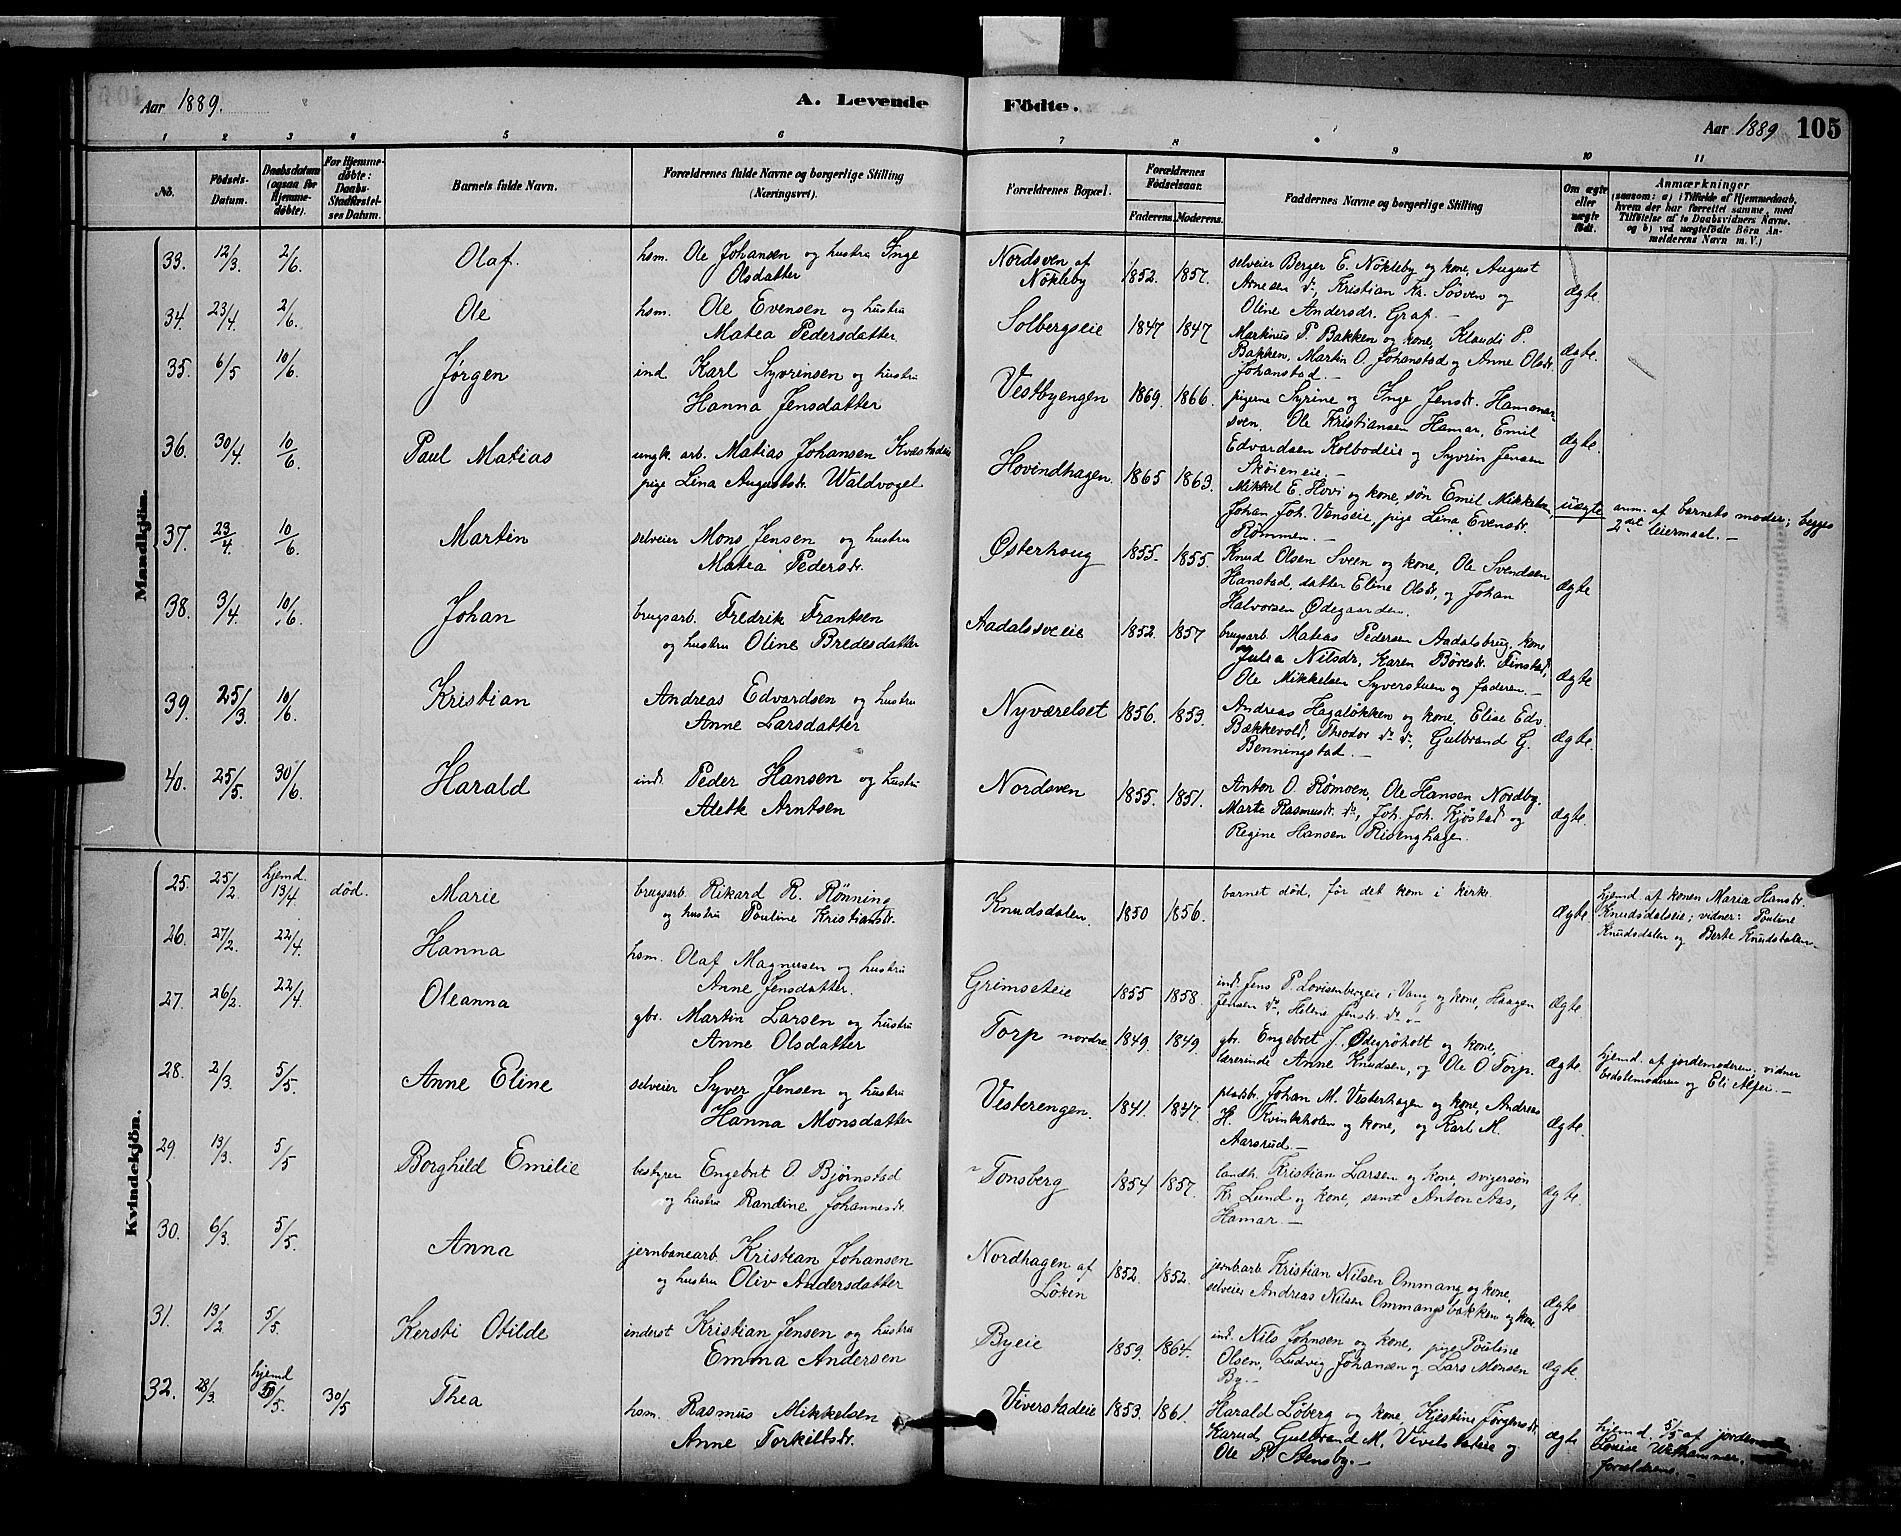 Aar 1889. A. Levende Födte. Aar 1889 105
1 2 3 4 5 6 7 8 9 10 11
No. Födsels-Datum. Daabsdatum (ogsaa for Hjemme-döbte). For Hjemme-döbte: Daabs-Stadfæstel-ses Datum. Barnets fulde Navn. Forældrenes fulde Navne og borgerlige Stilling (Næringsvei). Forældrenes Bopæl. Forældrenes Födselsaar. Faderens. Moderens. Faddernes Navne og borgerlige Stilling Om ægte eller uægte födt. Anmærkninger (saasom: a) i Tilfælde af Hjemmedaab, hvem der har forrettet samme, med Tilföielse af to Daabsvidners Navne. og b) ved uægtefödte Börn Anmelderens Navn m. V.)
Mandkjön.
33. 12/3. 2/6. Olaf. hsm. Ole Johansen og hustru Inge
Olsdatter
Nordsven af
Nökleby 1852. 1857.
selveier Berger E. Nökleby og kone, August
Arnesen do, Kristian Kr. Sösven og
Oline Andersdr. Graf. — ægte.
34. 23/4. 2/6. Ole hsm. Ole Evensen og hustru
Matea Pedersdatter.
Solbergseie 1847 1847
Martinus P. Bakken og kone, Klaudi P.
Bakken, Martin O. Johanstad og Anne Olsdr.
Johanstad. — ægte.
35. 6/5 10/6. Jørgen ind. Karl Syvrensen og hustru
Hanna Jensdatter
Vestbyengen 1869. 1866.
pigerne Syrine og Inge Jensdr. Hammer-
sven. Ole Kristiansen Hamar, Emil
Edvardsen Kolbodeie og Syvrin Jensen
Skøieneie. — ægte.
36. 30/4. 10/6 Paul Matias ungk. arb. Matias Johansen Kvæstadeie
pige Lina Augustdr. Waldvogel
Hovindhagen. 1865 1863.
Mikkel E. Hovi og kone, søn Emil Mikkelsen,
Johan Joh. Venseie, pige Lina Evensdr.
Rømmen. — uægte anm. af barnets moder; begges
2det leiermaal. —
37. 23/4. 10/6. Martin selveier Mons Jensen og hustru
Matea Pedersdr.
Østerhoug 1855. 1855.
Knud Olsen Sveen og kone, Ole Svendsen
Hanstad, datter Eline Olsdr, og Johan
Halvorsen Ødegaarden. ægte
38. 3/4. 10/6. Johan brugsarb. Fredrik Frantsen
og hustru Oline Bredesdatter
Aadalsveie 1852. 1857
brugsarb. Matias Pedersen Aadalsbrug, kone
Julia Nilsdr, Karen Böresdr. Finstad,
Ole Mikkelsen Syverstuen og faderen. — ægte
39. 25/3 10/6. Kristian Andreas Edvardsen og hustru
Anne Larsdatter
Nyværelset 1856. 1853.
Andreas Hagaløkken og kone, Elise Edv.
Bækkevold, Theodor do do, Gulbrand G.
Benningstad. — ægte.
40. 25/5. 30/6. Harald inds. Peder Hansen og hustru
Aleth Arntsen
Nordsven 1855. 1851.
Anton O. Rømoen, Ole Hansen Nordby.
Marte Rasmusdr. do, Joh. Joh. Kjöstad og
Regine Hansen Risenghage. ægte.
Kvindekjön.
25. 25/2. hjemd. 13/4 død. Marie brugsarb. Rikard R. Rønning
og hustru Pouline Kristiansdr.
Knudsdalen. 1850 1856.
barnet död, før det kom i kirke. ægte.
hjemd. af konen Maria Hansdr.
Knudsdalseie; vidner: Pouline
Knudsdalen og Berte Knudsdalen.
26. 27/2. 22/4. Hanna hsm. Olaf Magnusen og hustru
Anne Jensdatter.
Grimseteie 1855 1858.
ind. Jens P. Lovisenbergeie i Vang og kone, Haagen
Jensen do, Helene Jensdr. do. — ægte.
27. 26/2. 22/4. Oleanna gbr. Martin Larsen og hustru
Anne Olsdatter
Torp nordre 1849. 1849.
gbr. Engebret J. Ødegröholt og kone,
lærerinde Anne Knudsen, og Ole O Torp. ægte.
hjemd. af jordemoderen; vidner
bedstemoderen og Eli Alfei. —
28. 2/3. 5/5. Anne Eline selveier Syver Jensen og hustru
Hanna Monsdatter
Vesterengen. 1841. 1847.
pladsbr. Johan M. Vesterhagen og kone, Andreas
H. Kvinkholen og kone, og Karl M.
Aarsrud. — ægte.
29. 13/3. 5/5 Borghild Emilie bestyrer Engebret O. Bjørnstad
og hustru Randine Johannesdr.
Tonsberg 1854 1857.
landh. Kristian Larsen og kone, svigersøn
Kr. Lund og kone, samt Anton Aas,
Hamar. — ægte.
30. 6/3. 5/5. Anna jernbanearb. Kristian Johansen
og hustru Oliv Andersdatter
Nordhagen af
Löten 1852. 1852.
jernbarb. Kristian Nilsen Ommang og kone,
selveier Andreas Nilsen Ommangsbakken og kone. ægte.
31. 13/2 5/5. Kersti Otilde inderst Kristian Jensen og hustru
Emma Andersen
Byeie 1859. 1864.
ind. Nils Johnsen og kone, pige Pouline
Olsen, Ludvig Johansen og Lars Monsen
By. — ægte.
32. 28/3. hjemd 5/5. 30/5 Thea hsm. Rasmus Mikkelsen
Anne Torkildsdr.
Viverstadeie 1853. 1861.
Harald Løberg og kone, Kjestine Jörgensdr.
Karud, Gulbrand M. Vivelstadeie og
Ole P. Stensby. — ægte
hjemd. 5/5 af jordemoder
Louise
forældrene. —